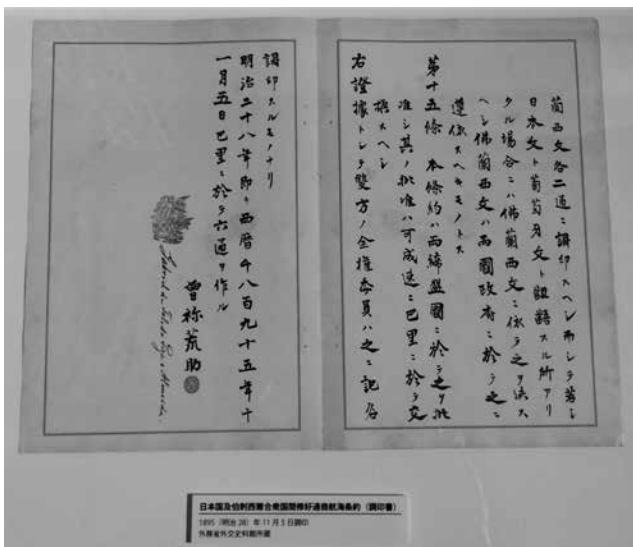 蘭西文各二通ニ調印スヘシ而シテ若シ
日本文ト葡萄牙文ト齟齬スル所アリ
タル場合ニハ佛蘭西文ニ依テ之ヲ決ス
ヘシ佛蘭西文ハ両國政府ニ於テ之ニ
遵依スヘキモノトス
第十五條 本條約ハ両締盟國ニ於テ之ヲ批
准シ其ノ批准ハ可成速ニ巴里ニ於テ交
換スヘシ
右證據トシテ雙方ノ全權委員ハ之ニ記名
調印スルモノナリ
明治二十八年即チ西暦千八百九十五年十
一月五日巴里ニ於テ六通ヲ作ル
曾祢荒助
日本国及伯剌西爾合衆国間修好通商航海条約(調印書)
1895(明治28)年11月5日調印
外務省外交史料館所蔵